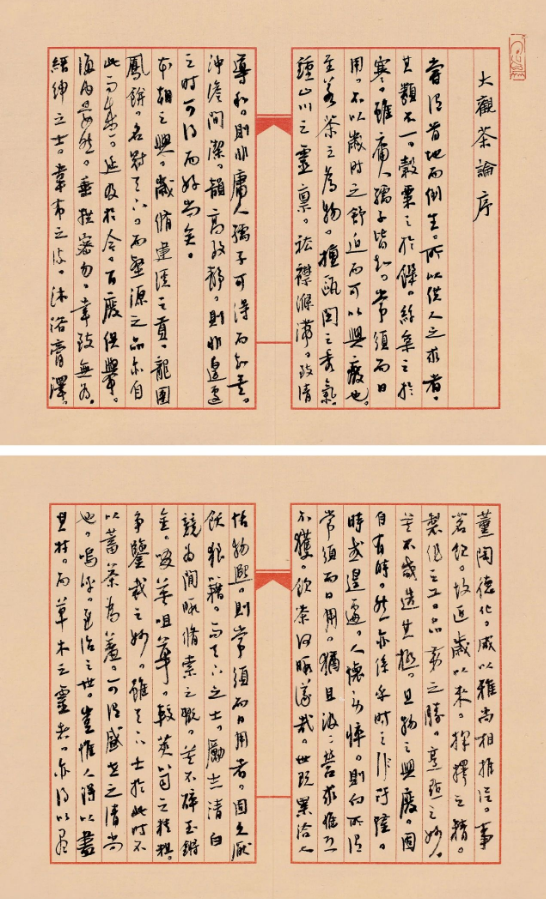 大觀茶論序
嘗謂首地而倒生。所以供人之求者。
其類不一。穀粟之於饑。絲枲之於
寒。雖庸人孺子皆知。常須而日
用。不以歲時之舒迫而可以興廢也。
至若茶之為物。擅甌閩之秀氣。
鍾山川之靈稟。祛襟滌滯。致清
導和。則非庸人孺子可得而知矣。
沖澹閒潔。韻高致靜。則非遑遽
之時可得而好尚矣。
本朝之興。歲脩建溪之貢。龍團
鳳餅。名冠天下。而壑源之品亦自
此而盛。延及於今。百廢俱舉。
海內晏然。垂拱密勿。幸致無為。
縉紳之士。韋布之流。沐浴膏澤。
薰陶德化。咸以雅尚相推從。事
茗飲。故近歲以來。採擇之精。
製作之工。品第之勝。烹點之妙。
莫不咸造其極。且物之興廢。固
自有時。然亦係乎時之汙隆。
時或遑遽。人懷勞悴。則向所謂
常須而日用。猶且汲汲營求惟恐
不獲。飲茶何暇議哉。世既累洽人
恬物熙。則常須而日用者。固久厭
飫狼籍。而天下之士。勵志清白
競為閒暇脩索之翫。莫不碎玉鏘
金。啜英咀華。較莢笥之精粗。
爭鑒裁之妙。雖天下士於此時不
以蓄茶為羞。可謂盛世之清尚
也。嗚呼。至治之世。豈惟人得以盡
其材。而草木之靈者。亦得以盡